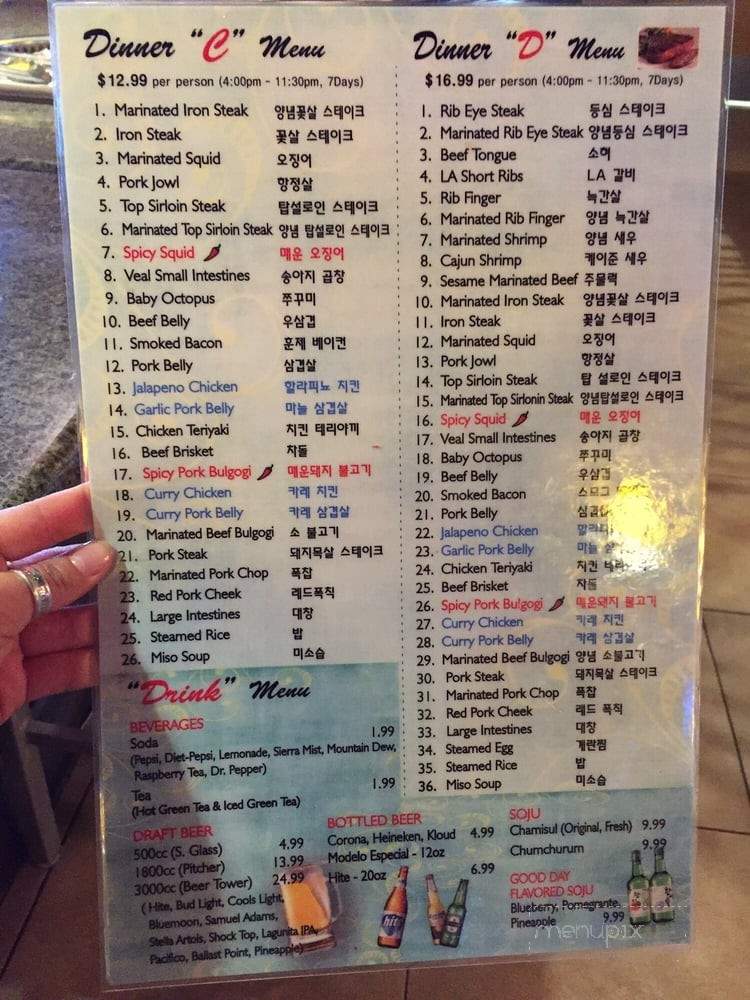 Dinner "C" Menu
$12.99 per person (4:00pm - 11:30pm, 7Days)
1. Marinated Iron Steak 양념꽃살 스테이크
2. Iron Steak 꽃살 스테이크
3. Marinated Squid 오징어
4. Pork Jowl 항정살
5. Top Sirloin Steak 탑설로인 스테이크
6. Marinated Top Sirloin Steak 양념 탑설로인 스테이크
7. Spicy Squid 매운 오징어
8. Veal Small Intestines 송아지 곱창
9. Baby Octopus 쭈꾸미
10. Beef Belly 우삼겹
11. Smoked Bacon 훈제 베이컨
12. Pork Belly 삼겹살
13. Jalapeno Chicken 할라피뇨 치킨
14. Garlic Pork Belly 마늘 삼겹살
15. Chicken Teriyaki 치킨 테리야끼
16. Beef Brisket 차돌
17. Spicy Pork Bulgogi 매운돼지 불고기
18. Curry Chicken 카레 치킨
19. Curry Pork Belly 카레 삼겹살
20. Marinated Beef Bulgogi 소 불고기
21. Pork Steak 돼지목살 스테이크
22. Marinated Pork Chop 폭찹
23. Red Pork Cheek 레드폭칙
24. Large Intestines 대창
25. Steamed Rice 밥
26. Miso Soup 미소습
"Drink" Menu
BEVERAGES
Soda 1.99
(Pepsi, Diet-Pepsi, Lemonade, Sierra Mist, Mountain Dew,
Raspberry Tea, Dr. Pepper)
Tea 1.99
(Hot Green Tea & Iced Green Tea)
DRAFT BEER
500cc (S. Glass) 4.99
1800cc (Pitcher) 13.99
3000cc (Beer Tower) 24.99
( Hite, Bud Light, Cools Light,
Bluemoon, Samuel Adams,
Stella Artois, Shock Top, Lagunita IPA,
Pacifico, Ballast Point, Pineapple)
BOTTLED BEER
Corona, Heineken, Kloud 4.99
Modelo Especial - 12oz
Hite - 20oz 6.99
Dinner "D" Menu
$16.99 per person (4:00pm - 11:30pm, 7Days)
1. Rib Eye Steak 등심 스테이크
2. Marinated Rib Eye Steak 양념등심 스테이크
3. Beef Tongue 소혀
4. LA Short Ribs LA 갈비
5. Rib Finger 늑간살
6. Marinated Rib Finger 양념 늑간살
7. Marinated Shrimp 양념 새우
8. Cajun Shrimp 케이준 새우
9. Sesame Marinated Beef 주물럭
10. Marinated Iron Steak 양념꽃살 스테이크
11. Iron Steak 꽃살 스테이크
12. Marinated Squid 오징어
13. Pork Jowl 항정살
14. Top Sirloin Steak 탑 설로인 스테이크
15. Marinated Top Sirlonin Steak 양념탑설로인 스테이크
16. Spicy Squid 매운 오징어
17. Veal Small Intestines 송아지 곱창
18. Baby Octopus 쭈꾸미
19. Beef Belly 우삼겹
20. Smoked Bacon
21. Pork Belly 삼겹살
22. Jalapeno Chicken
23. Garlic Pork Belly 마늘
24. Chicken Teriyaki 치킨
25. Beef Brisket 차돌
26. Spicy Pork Bulgogi 매운돼지 불고기
27. Curry Chicken 카레 치킨
28. Curry Pork Belly 카레 삼겹살
29. Marinated Beef Bulgogi 양념 소불고기
30. Pork Steak 돼지목살 스테이크
31. Marinated Pork Chop 폭찹
32. Red Pork Cheek 레드 폭칙
33. Large Intestines 대창
34. Steamed Egg 계란찜
35. Steamed Rice 밥
36. Miso Soup 미소습
SOJU
Chamisul (Original, Fresh) 9.99
Chumchurum 9.99
GOOD DAY
FLAVORED SOJU
Blueberry, Pomegrante
Pineapple 9.99
menupix